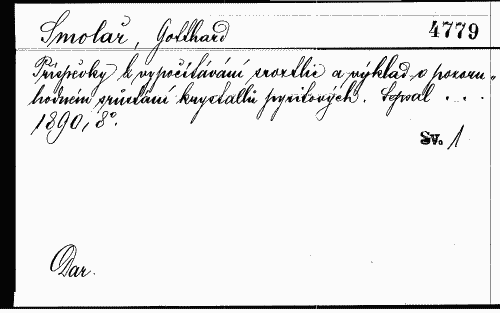 Smolař, Gotthard 4779
Příspěvky k vypočítávání srostlic a výklad o pozoru-
hodném srůstání krystallů pyritových. Sepsal . . .
1890, 8°.
Sv. 1
Dar.